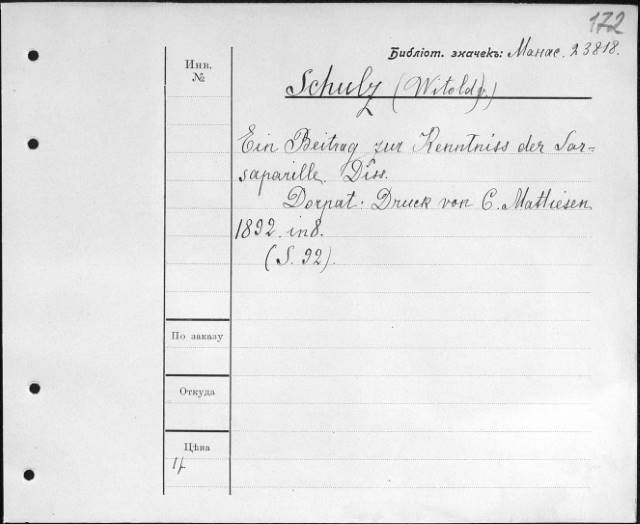 172
Библiот. значекъ: Манас. 23818.
Инв.
№
Schulz (Witold).)
Ein Beitrag zur Kenntniss der Sar=
saparille. Diss.
Dorpat. Druck von C. Mattiesen
1892. in 8.
(S. 92).
По заказу
Откуда
Цѣна